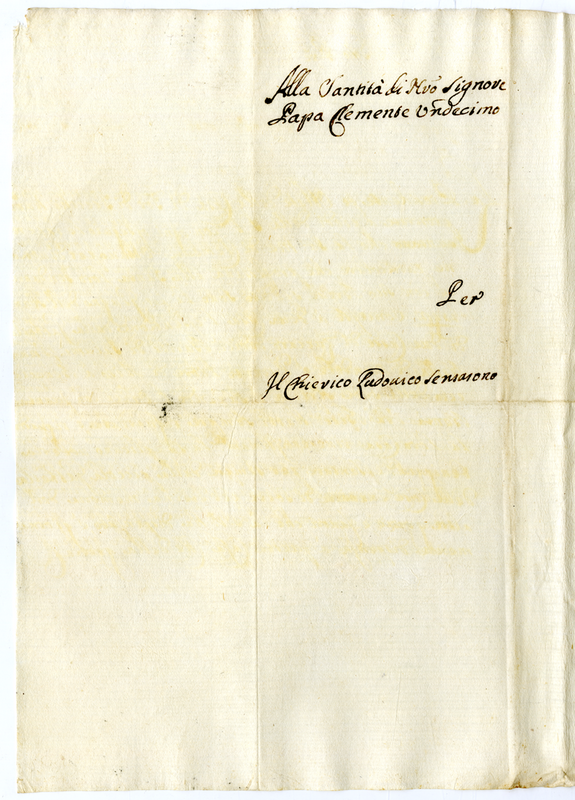 Alla Santità di Nro Signore
Papa Clemente Undecimo
Per
Il Chierico Ludovico Sensasono